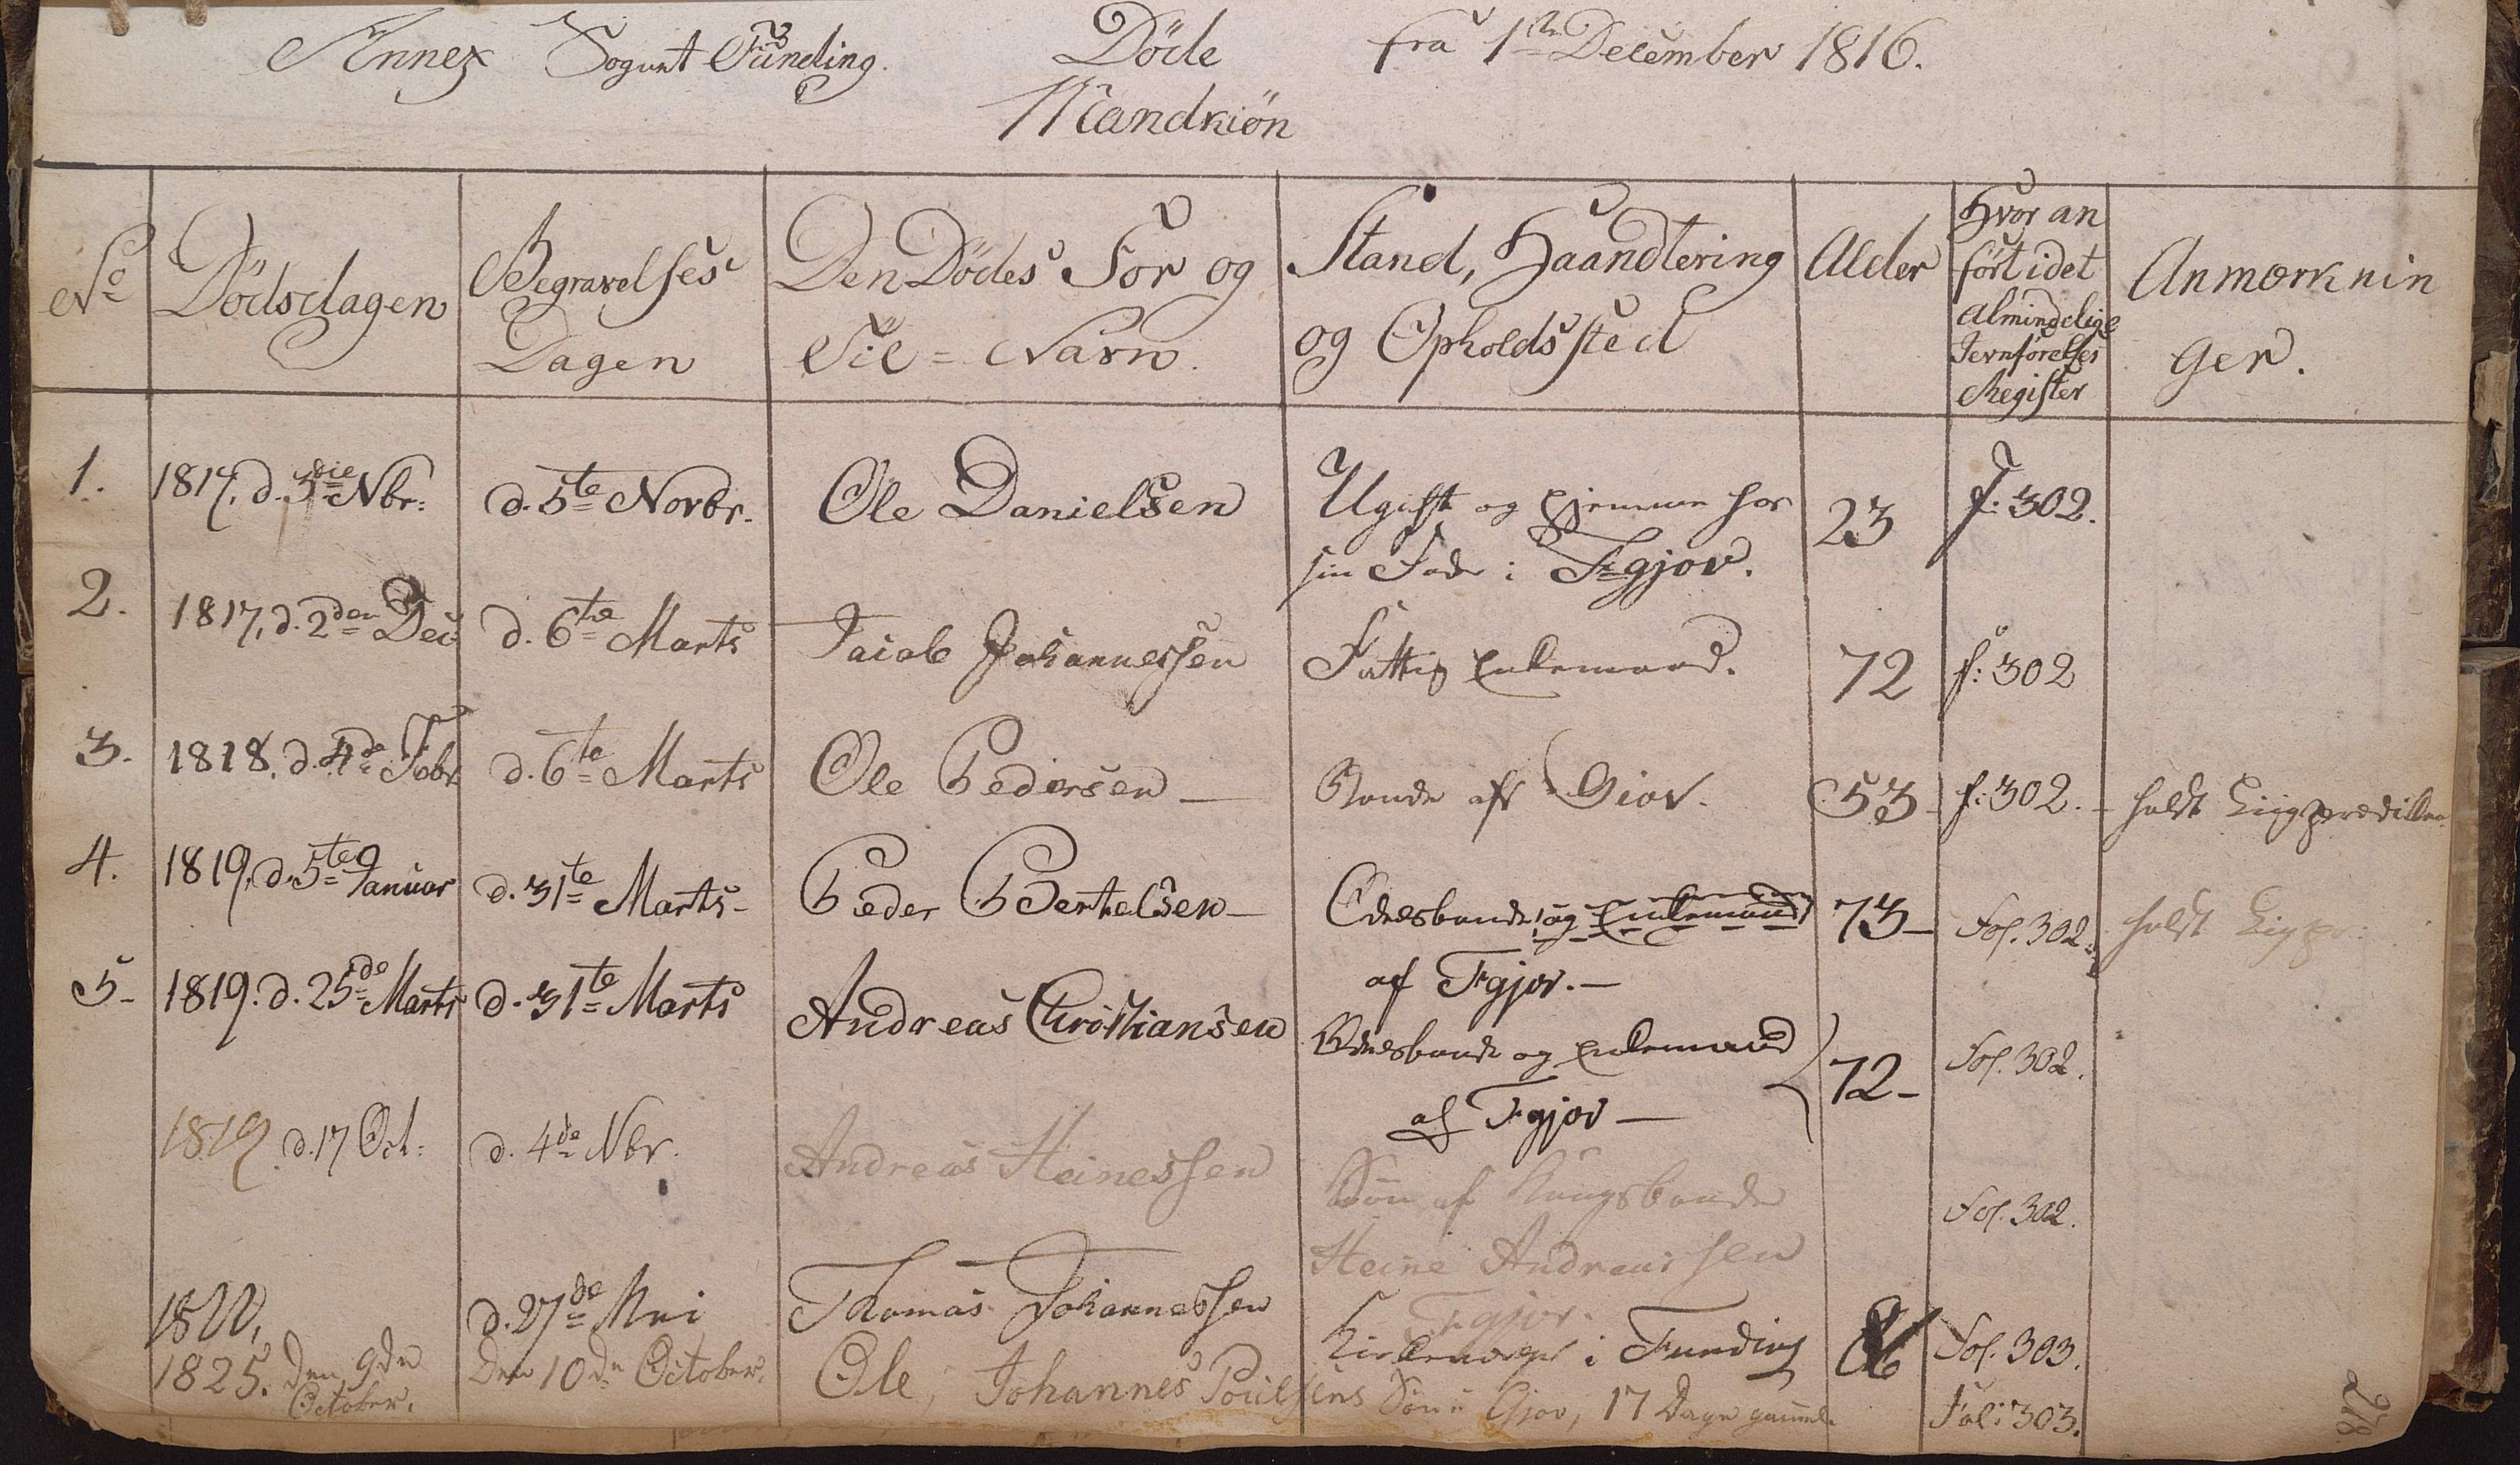 Annex Sognet Funding. Döde fra 1te December 1816.
Mandkiön
No Dödsdagen Begravelses Dagen Den Dödes For og Til=Navn. Stand, Haandtering og Opholdssted Alder Hvor anfört i det Almindelige Jevnförelses Register Anmærkninger.
1. 1817, d. 3die Nbr: d. 5te Novbr. Ole Danielsen Ugift og hjemme hos 23 f: 302.
sin Fader i Egjov.
2. 1817, d. 2den Dec d. 6te Marts Jacob Johannessen Fattig Enkemand. 72 f: 302
3. 1818, d. 4de Febr d. 6te Marts Ole Pedersen — Bonde af Giov. 53 f: 302. - holdt Liigprædiken
4. 1819, d. 5te Januar d. 31te Marts - Peder Bertelsen — Odelsbonde, og Enkemand 73 - Fol. 302. holdt Ligpr:
af Egjov. —
5 - 1819. d. 25de Marts d. 31te Marts Andreas Christiansen Odelsbonde og Enkemand 72 - Fol. 302.
af Egjov —
1819. d. 17 Oct: d. 4de Nbr. Andreas Heinessen Sön af Kongsbonde Fol. 302.
Heine Andreassen
Egjov.
1822, d. 27de Mai Thomas Johannessen Kirkeværge i Funding Fol. 303.
1825. den 9de October. Den 10de October. Ole, Johannes Poulsens Sön i Gjov, 17 Dage gammel. Fol: 303.
278